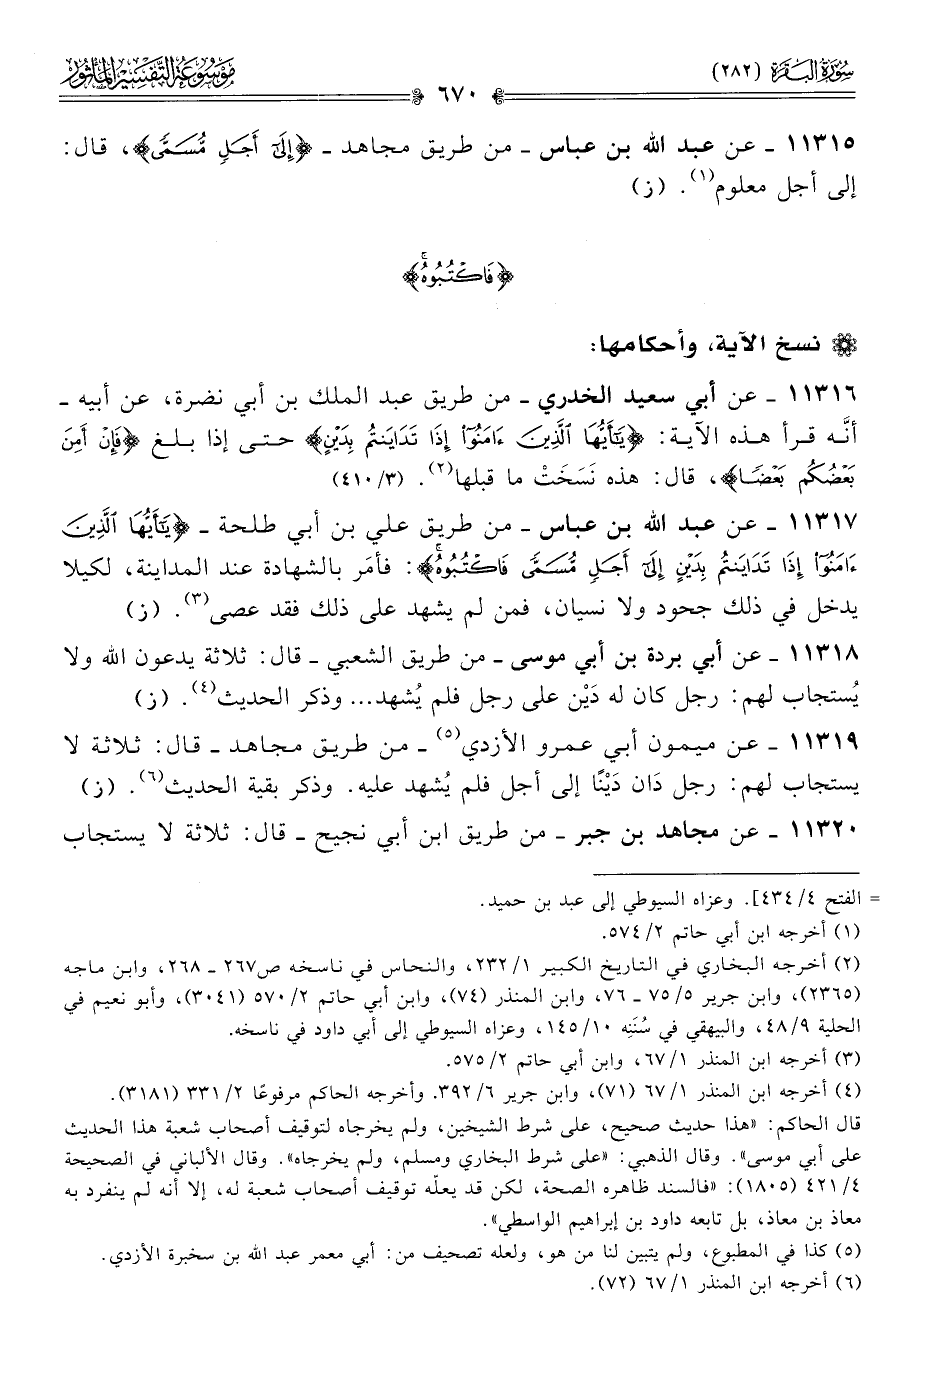 سُورَةُ البَقَرَةِ (٢٨٢)
٦٧٠
مَوْسُوعَةُ التَّفْسِيرِ المَأْثُور
١١٣١٥ ـ عن عبد الله بن عباس ـ من طريق مجاهد ـ ﴿إِلَىٰٓ أَجَلٍ مُّسَمًّى﴾، قال:
إلى أجل معلوم(١). (ز)
﴿فَٱكْتُبُوهُۚ﴾
نسخ الآية، وأحكامها:
١١٣١٦ ـ عن أبي سعيد الخدري ـ من طريق عبد الملك بن أبي نضرة، عن أبيه ـ
أنَّه قرأ هذه الآية: ﴿يَٰٓأَيُّهَا ٱلَّذِينَ ءَامَنُوٓا۟ إِذَا تَدَايَنتُم بِدَيْنٍ﴾ حتى إذا بلغ ﴿فَإِنْ أَمِنَ
بَعْضُكُم بَعْضًا﴾، قال: هذه نَسَخَتْ ما قبلها(٢). (٣/ ٤١٠)
١١٣١٧ ـ عن عبد الله بن عباس ـ من طريق علي بن أبي طلحة ـ ﴿يَٰٓأَيُّهَا ٱلَّذِينَ
ءَامَنُوٓا۟ إِذَا تَدَايَنتُم بِدَيْنٍ إِلَىٰٓ أَجَلٍ مُّسَمًّى فَٱكْتُبُوهُۚ﴾: فأمَر بالشهادة عند المداينة، لكيلا
يدخل في ذلك جحود ولا نسيان، فمن لم يشهد على ذلك فقد عصى(٣). (ز)
١١٣١٨ ـ عن أبي بردة بن أبي موسى ـ من طريق الشعبي ـ قال: ثلاثة يدعون الله ولا
يُستجاب لهم: رجل كان له دَيْن على رجل فلم يُشهد... وذكر الحديث(٤). (ز)
١١٣١٩ ـ عن ميمون أبي عمرو الأزدي(٥) ـ من طريق مجاهد ـ قال: ثلاثة لا
يستجاب لهم: رجل دَان دَيْنًا إلى أجل فلم يُشهد عليه. وذكر بقية الحديث(٦). (ز)
١١٣٢٠ ـ عن مجاهد بن جبر ـ من طريق ابن أبي نجيح ـ قال: ثلاثة لا يستجاب
= الفتح ٤/ ٤٣٤]. وعزاه السيوطي إلى عبد بن حميد.
(١) أخرجه ابن أبي حاتم ٢/ ٥٧٤.
(٢) أخرجه البخاري في التاريخ الكبير ١/ ٢٣٢، والنحاس في ناسخه ص٢٦٧ ـ ٢٦٨، وابن ماجه
(٢٣٦٥)، وابن جرير ٥/ ٧٥ ـ ٧٦، وابن المنذر (٧٤)، وابن أبي حاتم ٢/ ٥٧٠ (٣٠٤١)، وأبو نعيم في
الحلية ٩/ ٤٨، والبيهقي في سُنَنِه ١٠/ ١٤٥، وعزاه السيوطي إلى أبي داود في ناسخه.
(٣) أخرجه ابن المنذر ١/ ٦٧، وابن أبي حاتم ٢/ ٥٧٥.
(٤) أخرجه ابن المنذر ١/ ٦٧ (٧١)، وابن جرير ٦/ ٣٩٢. وأخرجه الحاكم مرفوعًا ٢/ ٣٣١ (٣١٨١).
قال الحاكم: «هذا حديث صحيح، على شرط الشيخين، ولم يخرجاه لتوقيف أصحاب شعبة هذا الحديث
على أبي موسى». وقال الذهبي: «على شرط البخاري ومسلم، ولم يخرجاه». وقال الألباني في الصحيحة
٤/ ٤٢١ (١٨٠٥): «فالسند ظاهره الصحة، لكن قد يعلّه توقيف أصحاب شعبة له، إلا أنه لم ينفرد به
معاذ بن معاذ، بل تابعه داود بن إبراهيم الواسطي».
(٥) كذا في المطبوع، ولم يتبين لنا من هو، ولعله تصحيف من: أبي معمر عبد الله بن سخبرة الأزدي.
(٦) أخرجه ابن المنذر ١/ ٦٧ (٧٢).